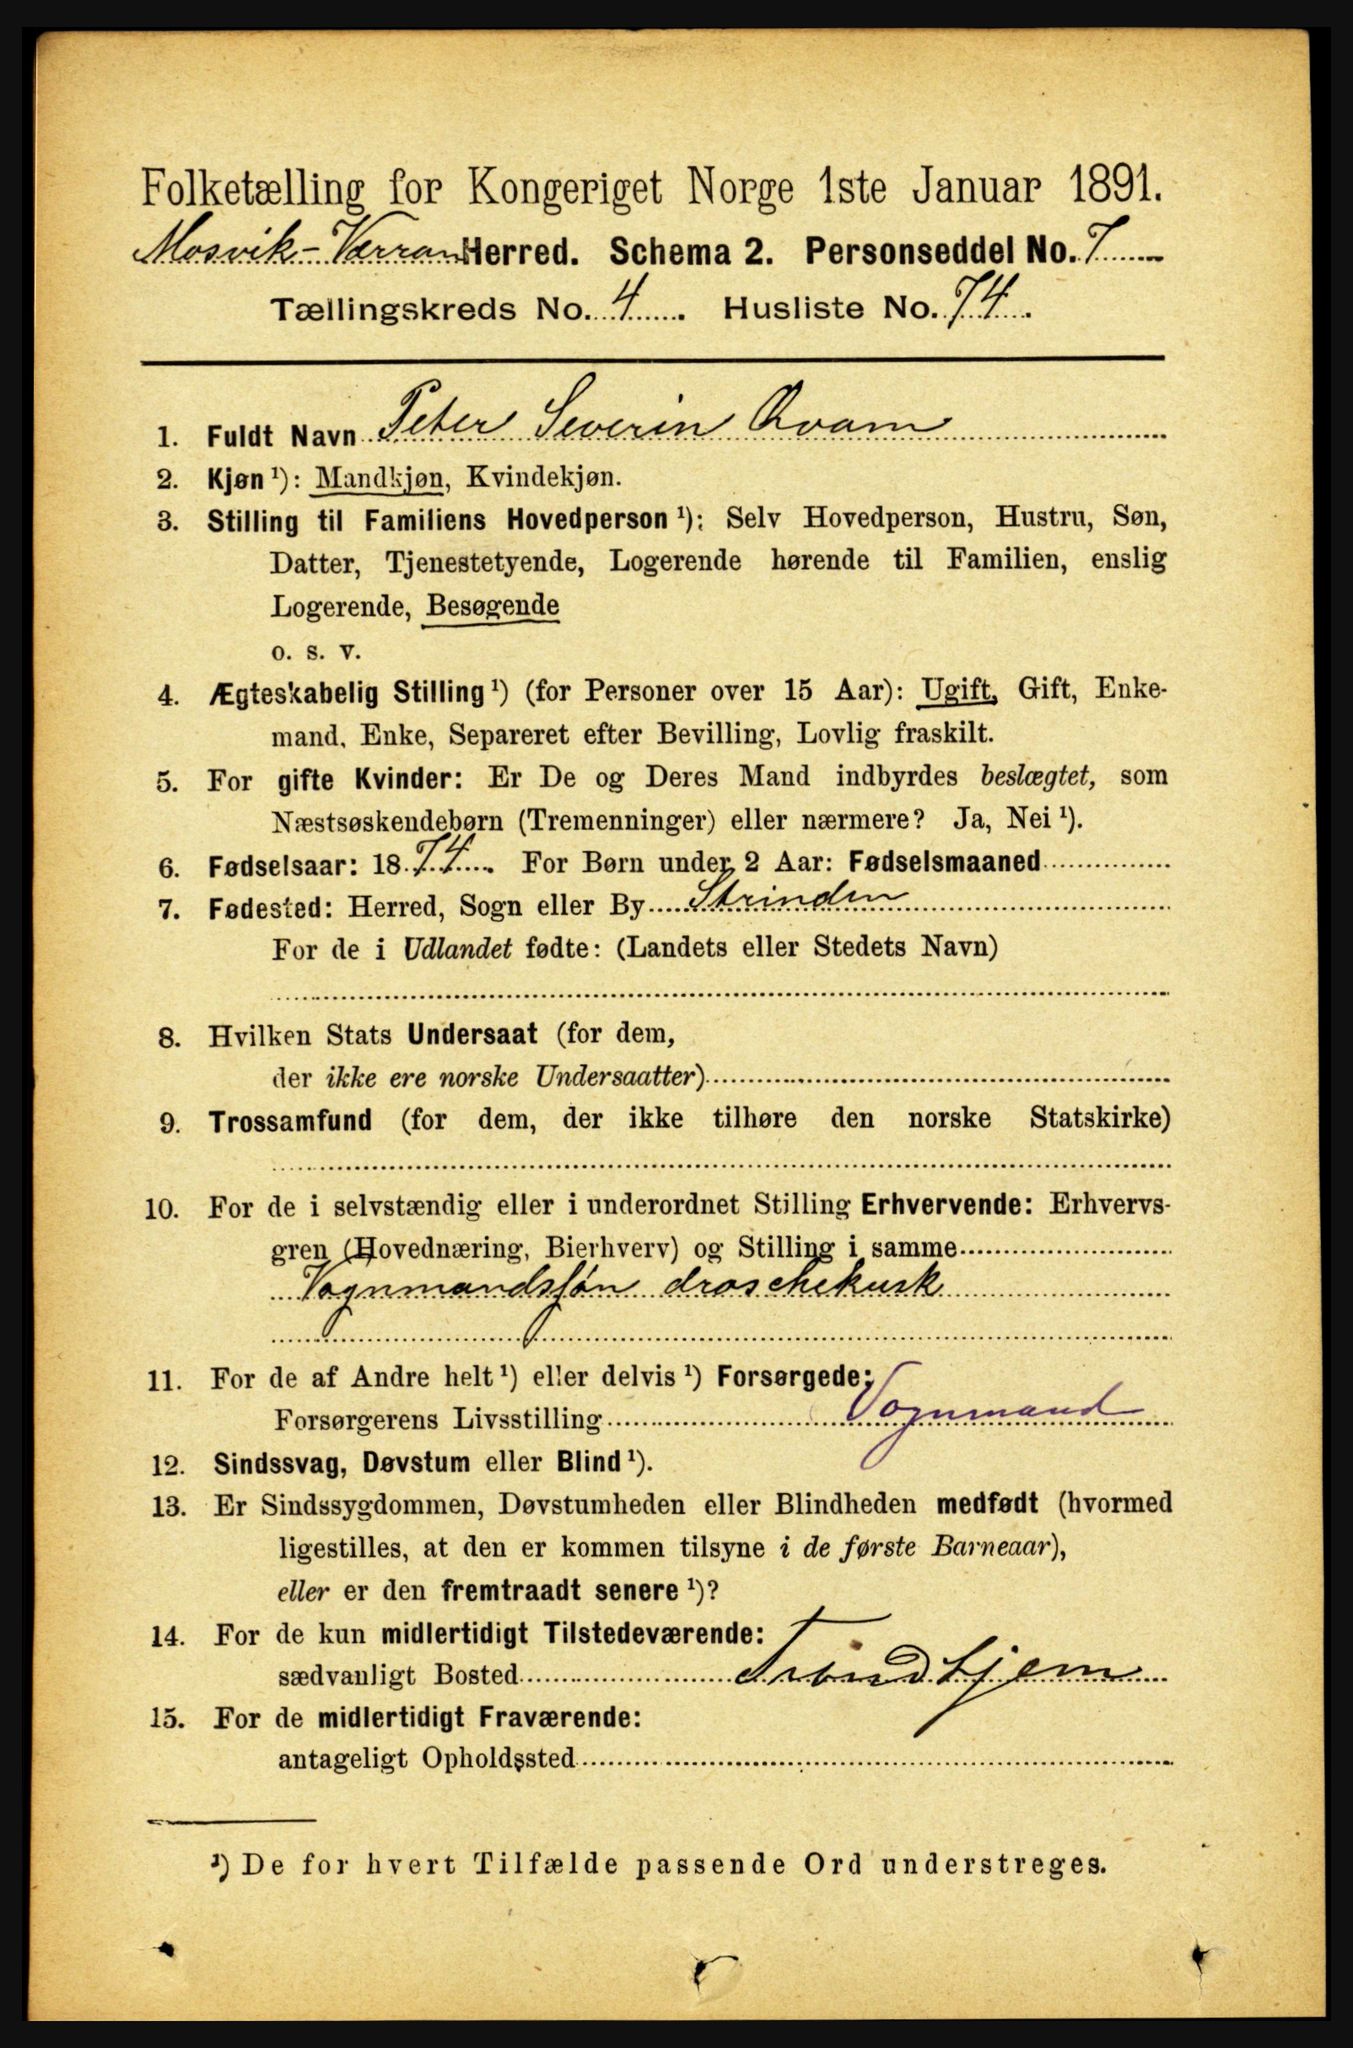 Folketælling for Kongeriget Norge 1ste Januar 1891.
Mosvik-Værran Herred. Schema 2. Personseddel No. 7
Tællingskreds No. 4. Husliste No. 74.
1. Fuldt Navn Peter Severin Qvam
2. Kjøn ¹): Mandkjøn, Kvindekjøn.
3. Stilling til Familiens Hovedperson ¹): Selv Hovedperson, Hustru, Søn,
Datter, Tjenestetyende, Logerende hørende til Familien, enslig
Logerende, Besøgende
o. s. v.
4. Ægteskabelig Stilling ¹) (for Personer over 15 Aar): Ugift, Gift, Enke-
mand, Enke, Separeret efter Bevilling, Lovlig fraskilt.
5. For gifte Kvinder: Er De og Deres Mand indbyrdes beslægtet, som
Næstsøskendebørn (Tremenninger) eller nærmere? Ja, Nei ¹).
6. Fødselsaar: 1874. For Børn under 2 Aar: Fødselsmaaned
7. Fødested: Herred, Sogn eller By Strinden
For de i Udlandet fødte: (Landets eller Stedets Navn)
8. Hvilken Stats Undersaat (for dem,
der ikke ere norske Undersaatter)
9. Trossamfund (for dem, der ikke tilhøre den norske Statskirke)
10. For de i selvstændig eller i underordnet Stilling Erhvervende: Erhvervs-
gren (Hovednæring, Bierhverv) og Stilling i samme
Vognmandssøn droschekusk
11. For de af Andre helt ¹) eller delvis ¹) Forsørgede:
Forsørgerens Livsstilling Vognmand
12. Sindssvag, Døvstum eller Blind ¹).
13. Er Sindssygdommen, Døvstumheden eller Blindheden medfødt (hvormed
ligestilles, at den er kommen tilsyne i de første Barneaar),
eller er den fremtraadt senere ¹)?
14. For de kun midlertidigt Tilstedeværende:
sædvanligt Bosted Trondhjem
15. For de midlertidigt Fraværende:
antageligt Opholdssted
¹) De for hvert Tilfælde passende Ord understreges.